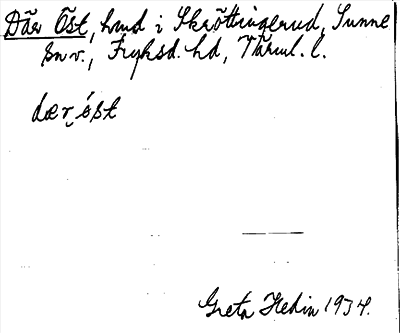 Där Öst, hmd i Skröttingerud, Sunne
sn v., Fryksd. hd, Värml. l.
dær ́öst
Greta Hedin 1934.